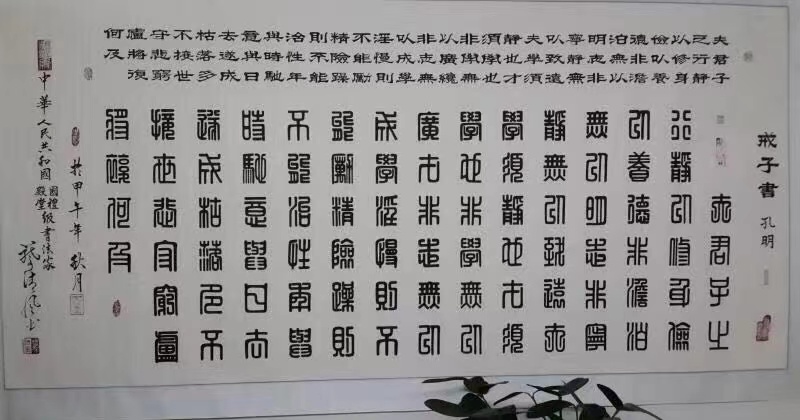 戒子書 孔明
夫君子
之行靜
以修身
儉以養
德非澹
泊無以
明志非
寧靜無
以致遠
夫學須
靜也才
須學也
非學無
以廣繞
非志無
以成學
淫慢則
不能勵
精險躁
則不能
治性年
與時馳
意與日
去遂成
枯落多
不接世
守悲窮
廬將復
何及
夫君子之
行靜以修身儉
以養德非澹泊
無以明志非寧
靜無以致遠夫
學須靜也才須
學也非學無以
廣才非志無以
成學淫慢則不
能勵精險躁則
不能治性年與
時馳意與日去
遂成枯落多不
接世悲守窮廬
將復何及
於甲午年秋月
中華人民共和國國禮殿堂級書法家